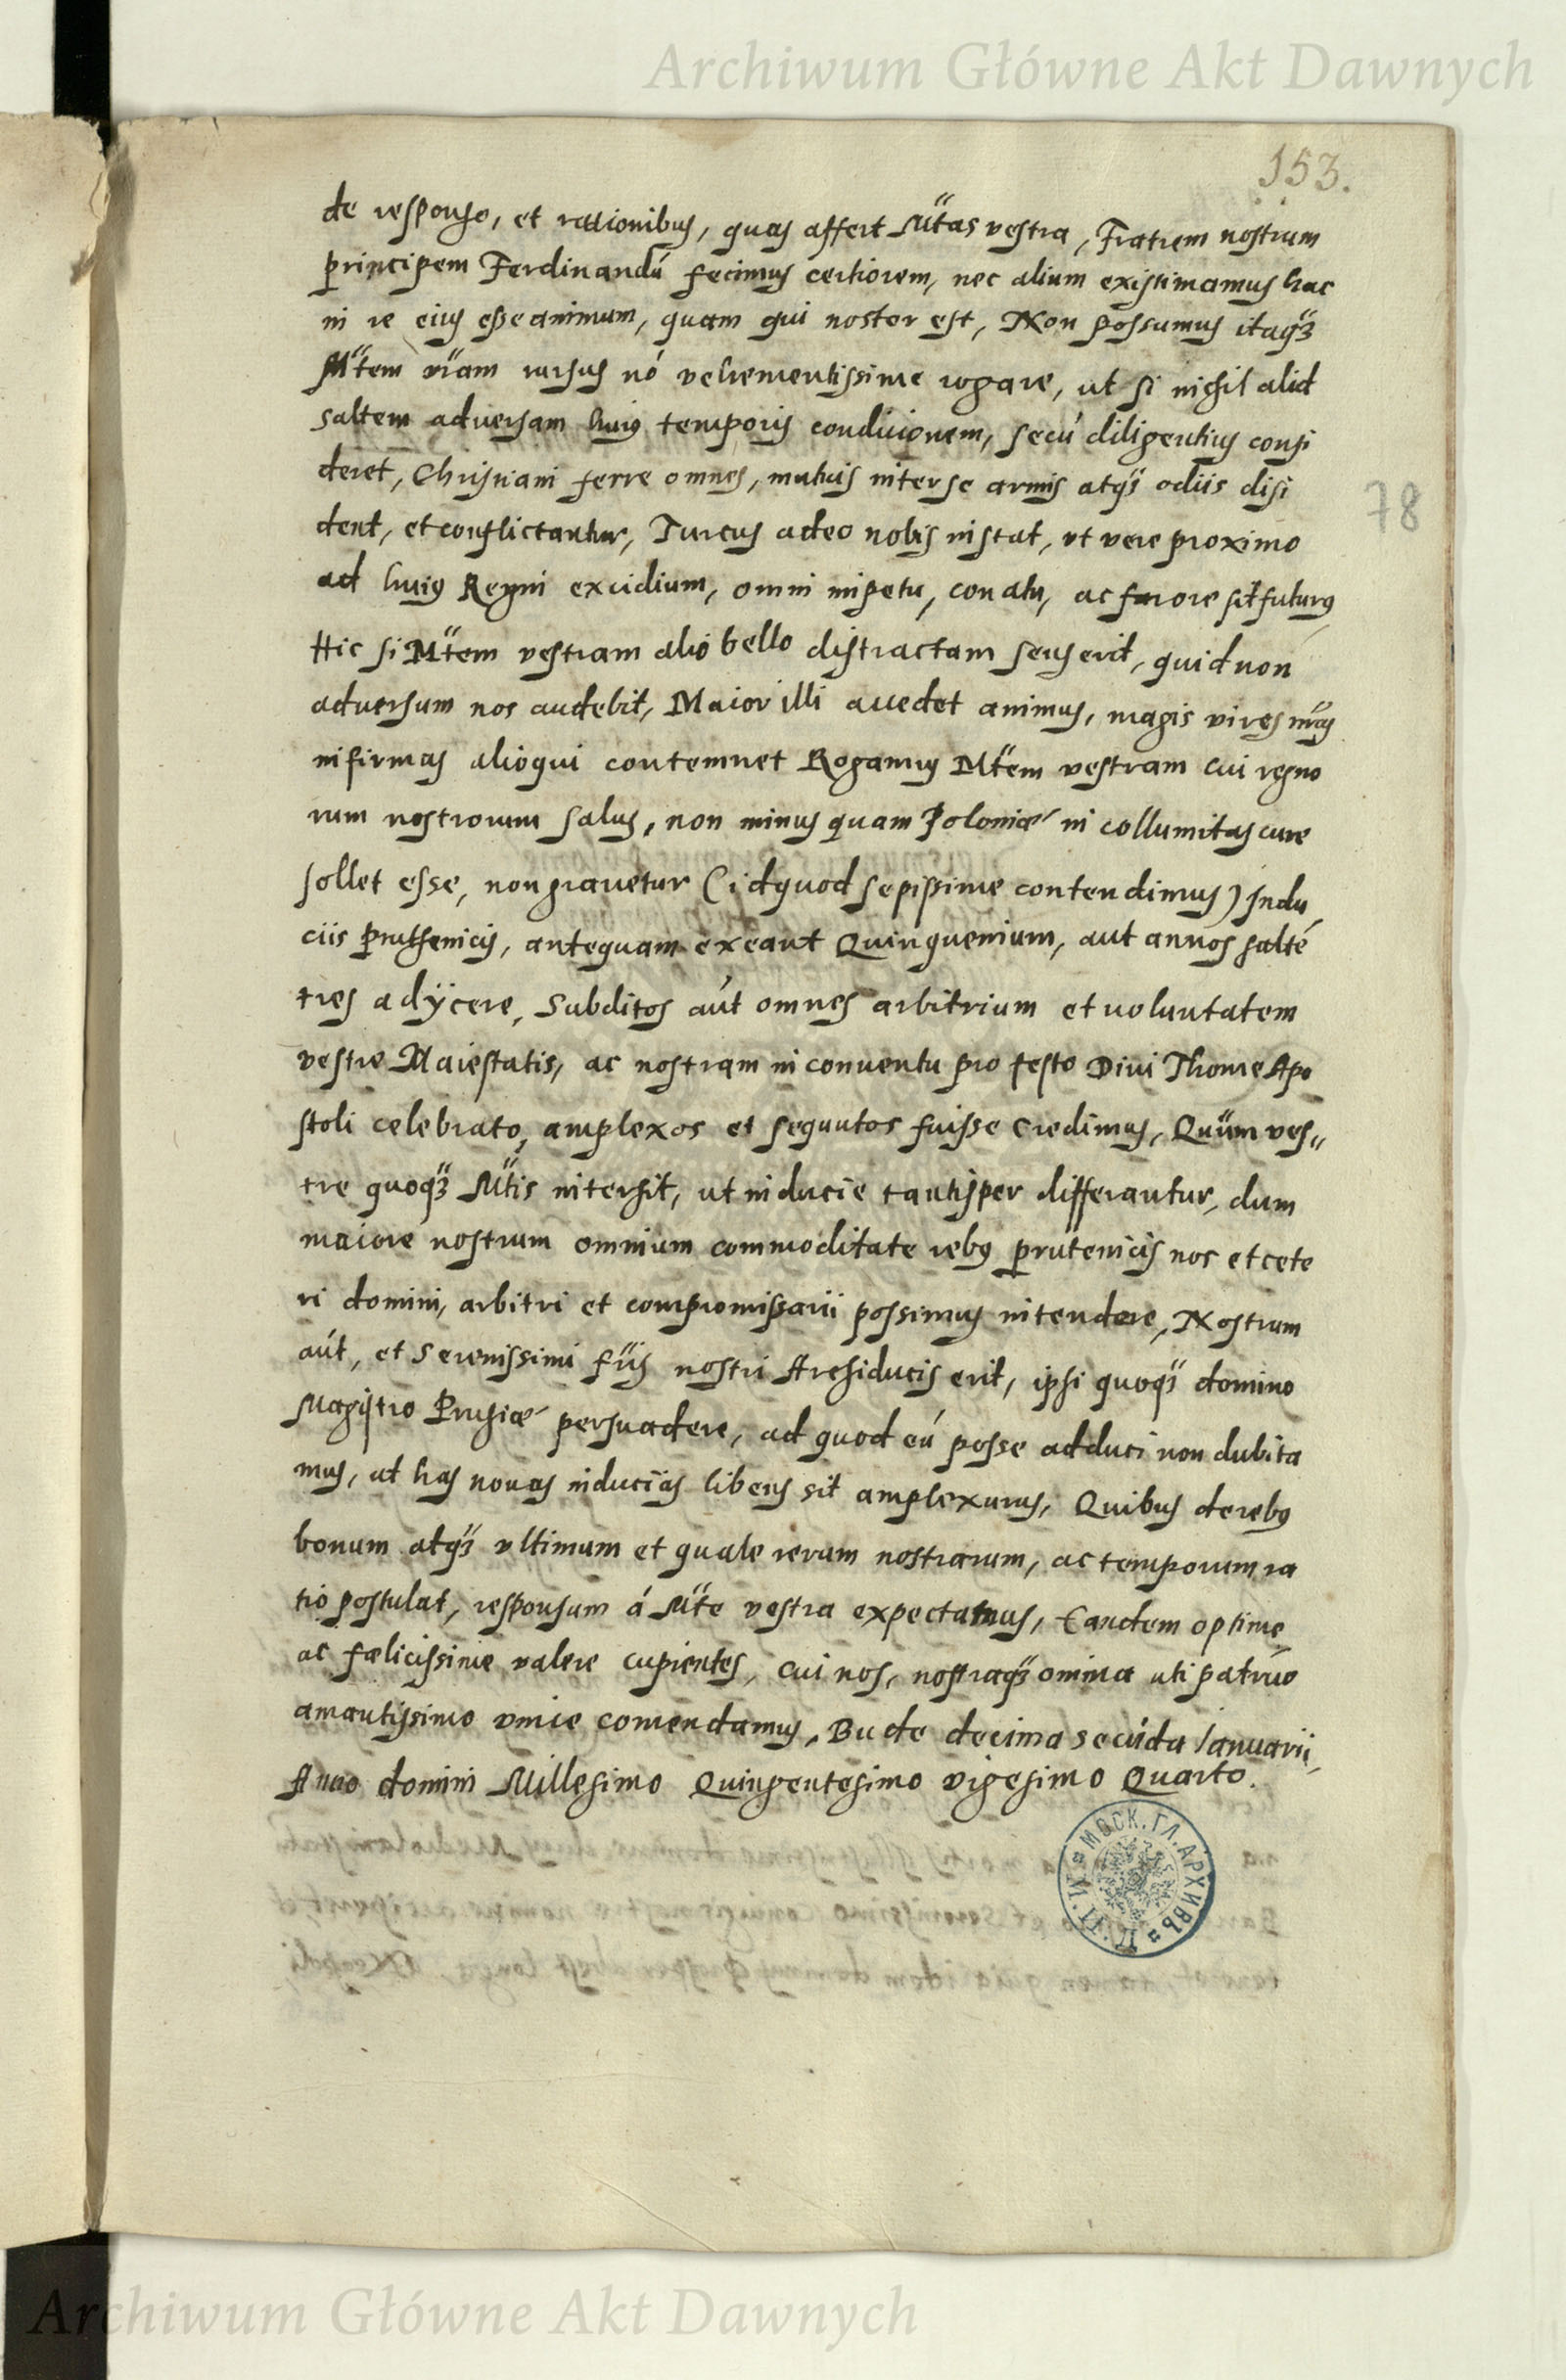 Archiwum Główne Akt Dawnych
153.
de responso, et rationibus, quas affert Mtas vestra, Fratrem nostrum
principem Ferdinandú fecimus certiorem, nec alium existimamus hac
in re eius esse animum, quam qui noster est, Non possumus itaq3
Mtem vram rursus nó vehementissime rogare, ut si nichil alid
saltem adversam huius temporis condicionem, secú diligentius consi
deret, Christiani ferre omnes, mutuis inter se armis atq3 odiis disi
dent, et conflictantur, Turcus adeo nobis instat, ut vere proximo
ad huius Regni excidium, omni impetu, conatu, ac furore sit futurus
Hic si Mtem vestram alio bello distractam senserit, quid non
adversum nos audebit, Maior illi accedet animus, magis vires nras
infirmas alioqui contemnet Rogamus Mtem vestram cui regno
rum nostrorum salus, non minus quam Poloniæ in collumitas cure
sollet esse, non gravetur (id quod sepissime contendimus) Indu
ciis pruthenicis, antequam exeant Quinquenium, aut annos salté
tres adÿcere, Subditos aút omnes arbitrium et voluntatem
vestre Maiestatis, ac nostram in conventu pro festo Divi Thome Apo
stoli celebrato, amplexos et sequutos fuisse credimus, Quum ves„
tre quoq3 Mtis intersit, ut inducie tantisper differantur, dum
maiore nostrum omnium commoditate rebus prutenicis nos et cete
ri domini, arbitri et compromissarii possimus intendere, Nostrum
aút, et Serenissimi fris nostri Archiducis erit, ipsi quoq3 domino
Magistro Prusiæ persuadere, ad quod eú posse adduci non dubita
mus, ut has novas inducias libens sit amplexurus, Quibus de rebus
bonum atq3 ultimum et quale rerum nostrarum, ac temporum ra
tio postulat, responsum á Mte vestra expectamus, Eandem optime
ac fælicissime valere cupientes, cui nos, nostraq3 omnia uti patruo
amantissimo unice comendamus, Bude decima secúda Ianuarii,
Anno domini Millesimo Quingentesimo vigesimo Quarto.
78
МОСК. ГЛ. АРХИВЪ
М. И. Д.
Archiwum Główne Akt Dawnych